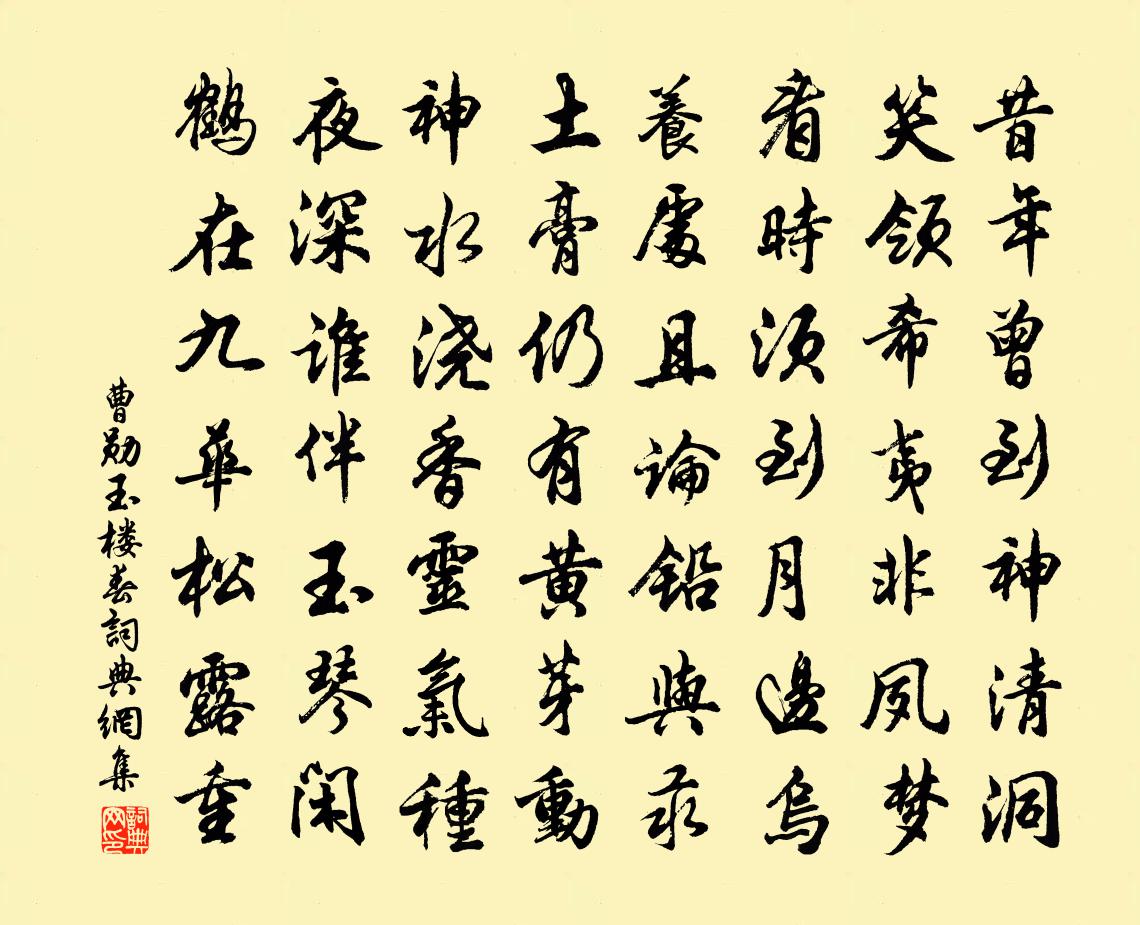 昔年曾到神清洞
笑領希夷非夙梦
看時須到月邊烏
養處且論鉛與汞
土膏仍有黄芽動
神水浇香靈氣種
夜深谁伴玉琴閑
鶴在九華松露重
曹勛玉楼春詞典網集
詞典网印